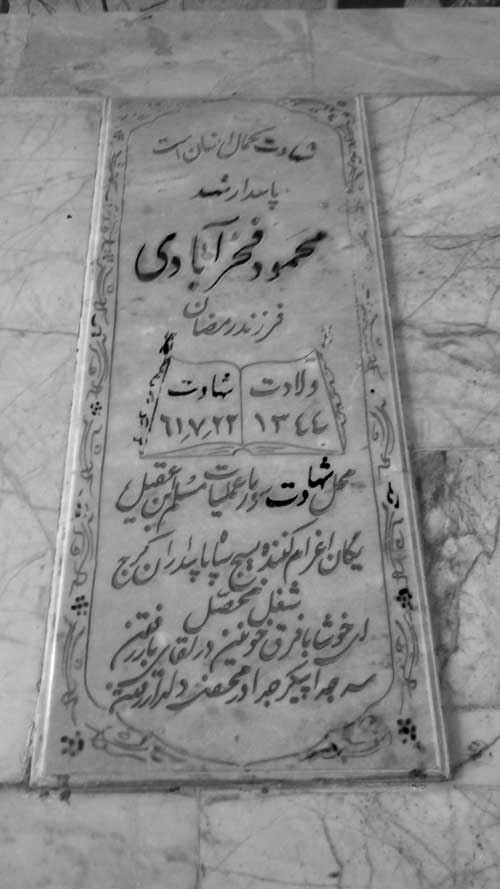 شهادت کمال انسان است
پاسدار شهید
محمود فخرآبادی
فرزند رمضان
ولادت شهادت
۱۳٤٤ ۶۱٫۷٫۲۲
محل شهادت سومار عملیات مسلم بن عقیل
یگان اعزام کننده بسیج سپاه پاسداران کرج
شغل محصل
ای خوشا با فرق خونین در لقای یار رفتن
سر جدا پیکر جدا در محفل دلدار رفتن